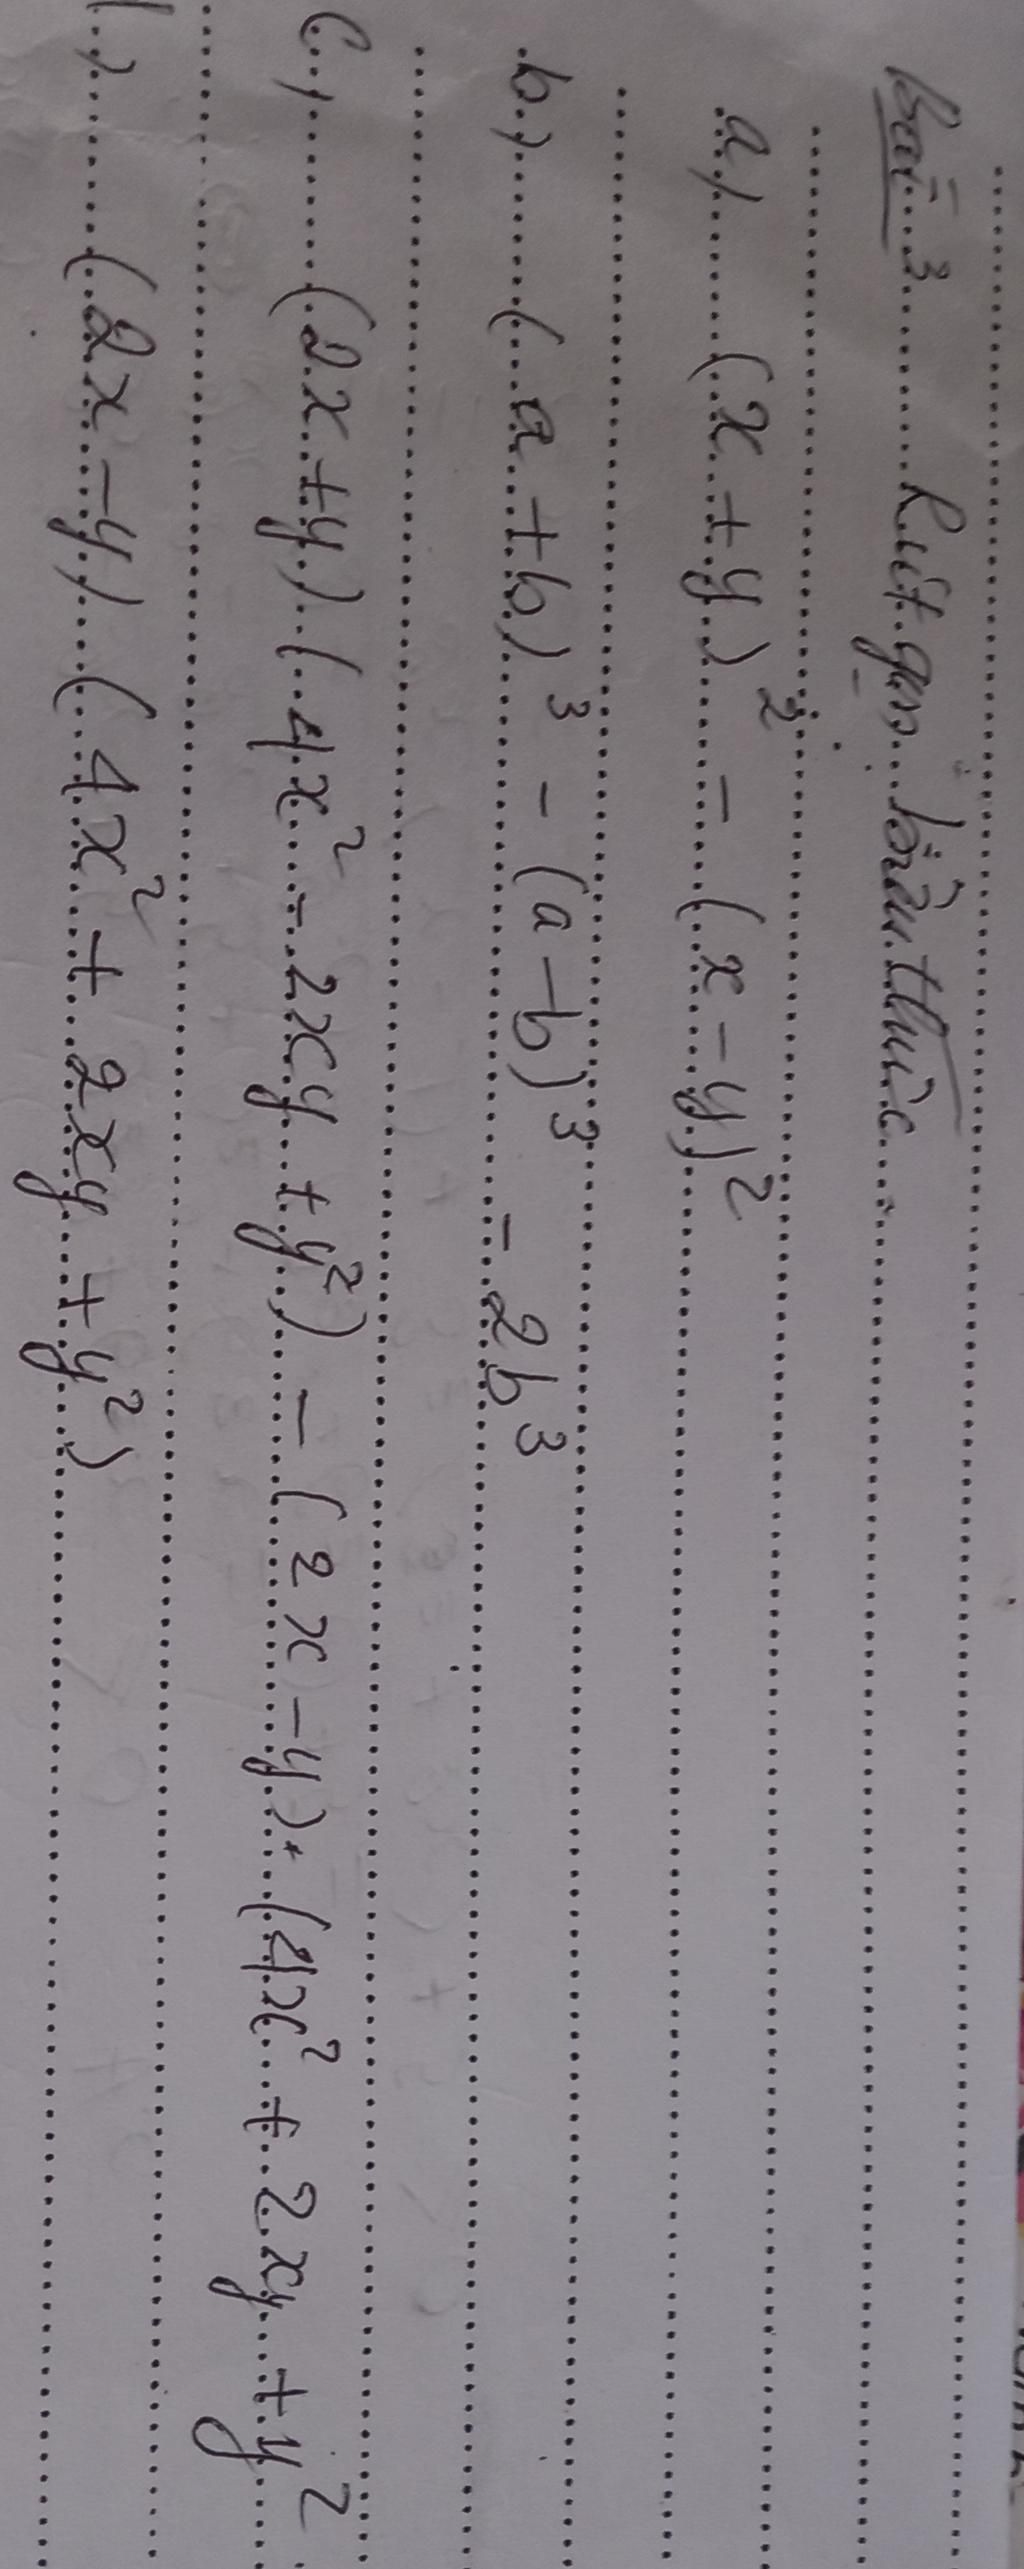 Bài 3 Rút gọn biểu thức
a, (x + y)² - (x - y)²
b) (a + b)³ - (a - b)³ - 2b³
c, (2x + y) (4x² - 2xy + y²) - (2x - y). (4x² + 2xy + y²
(2x - y) (4x² + 2xy + y²)